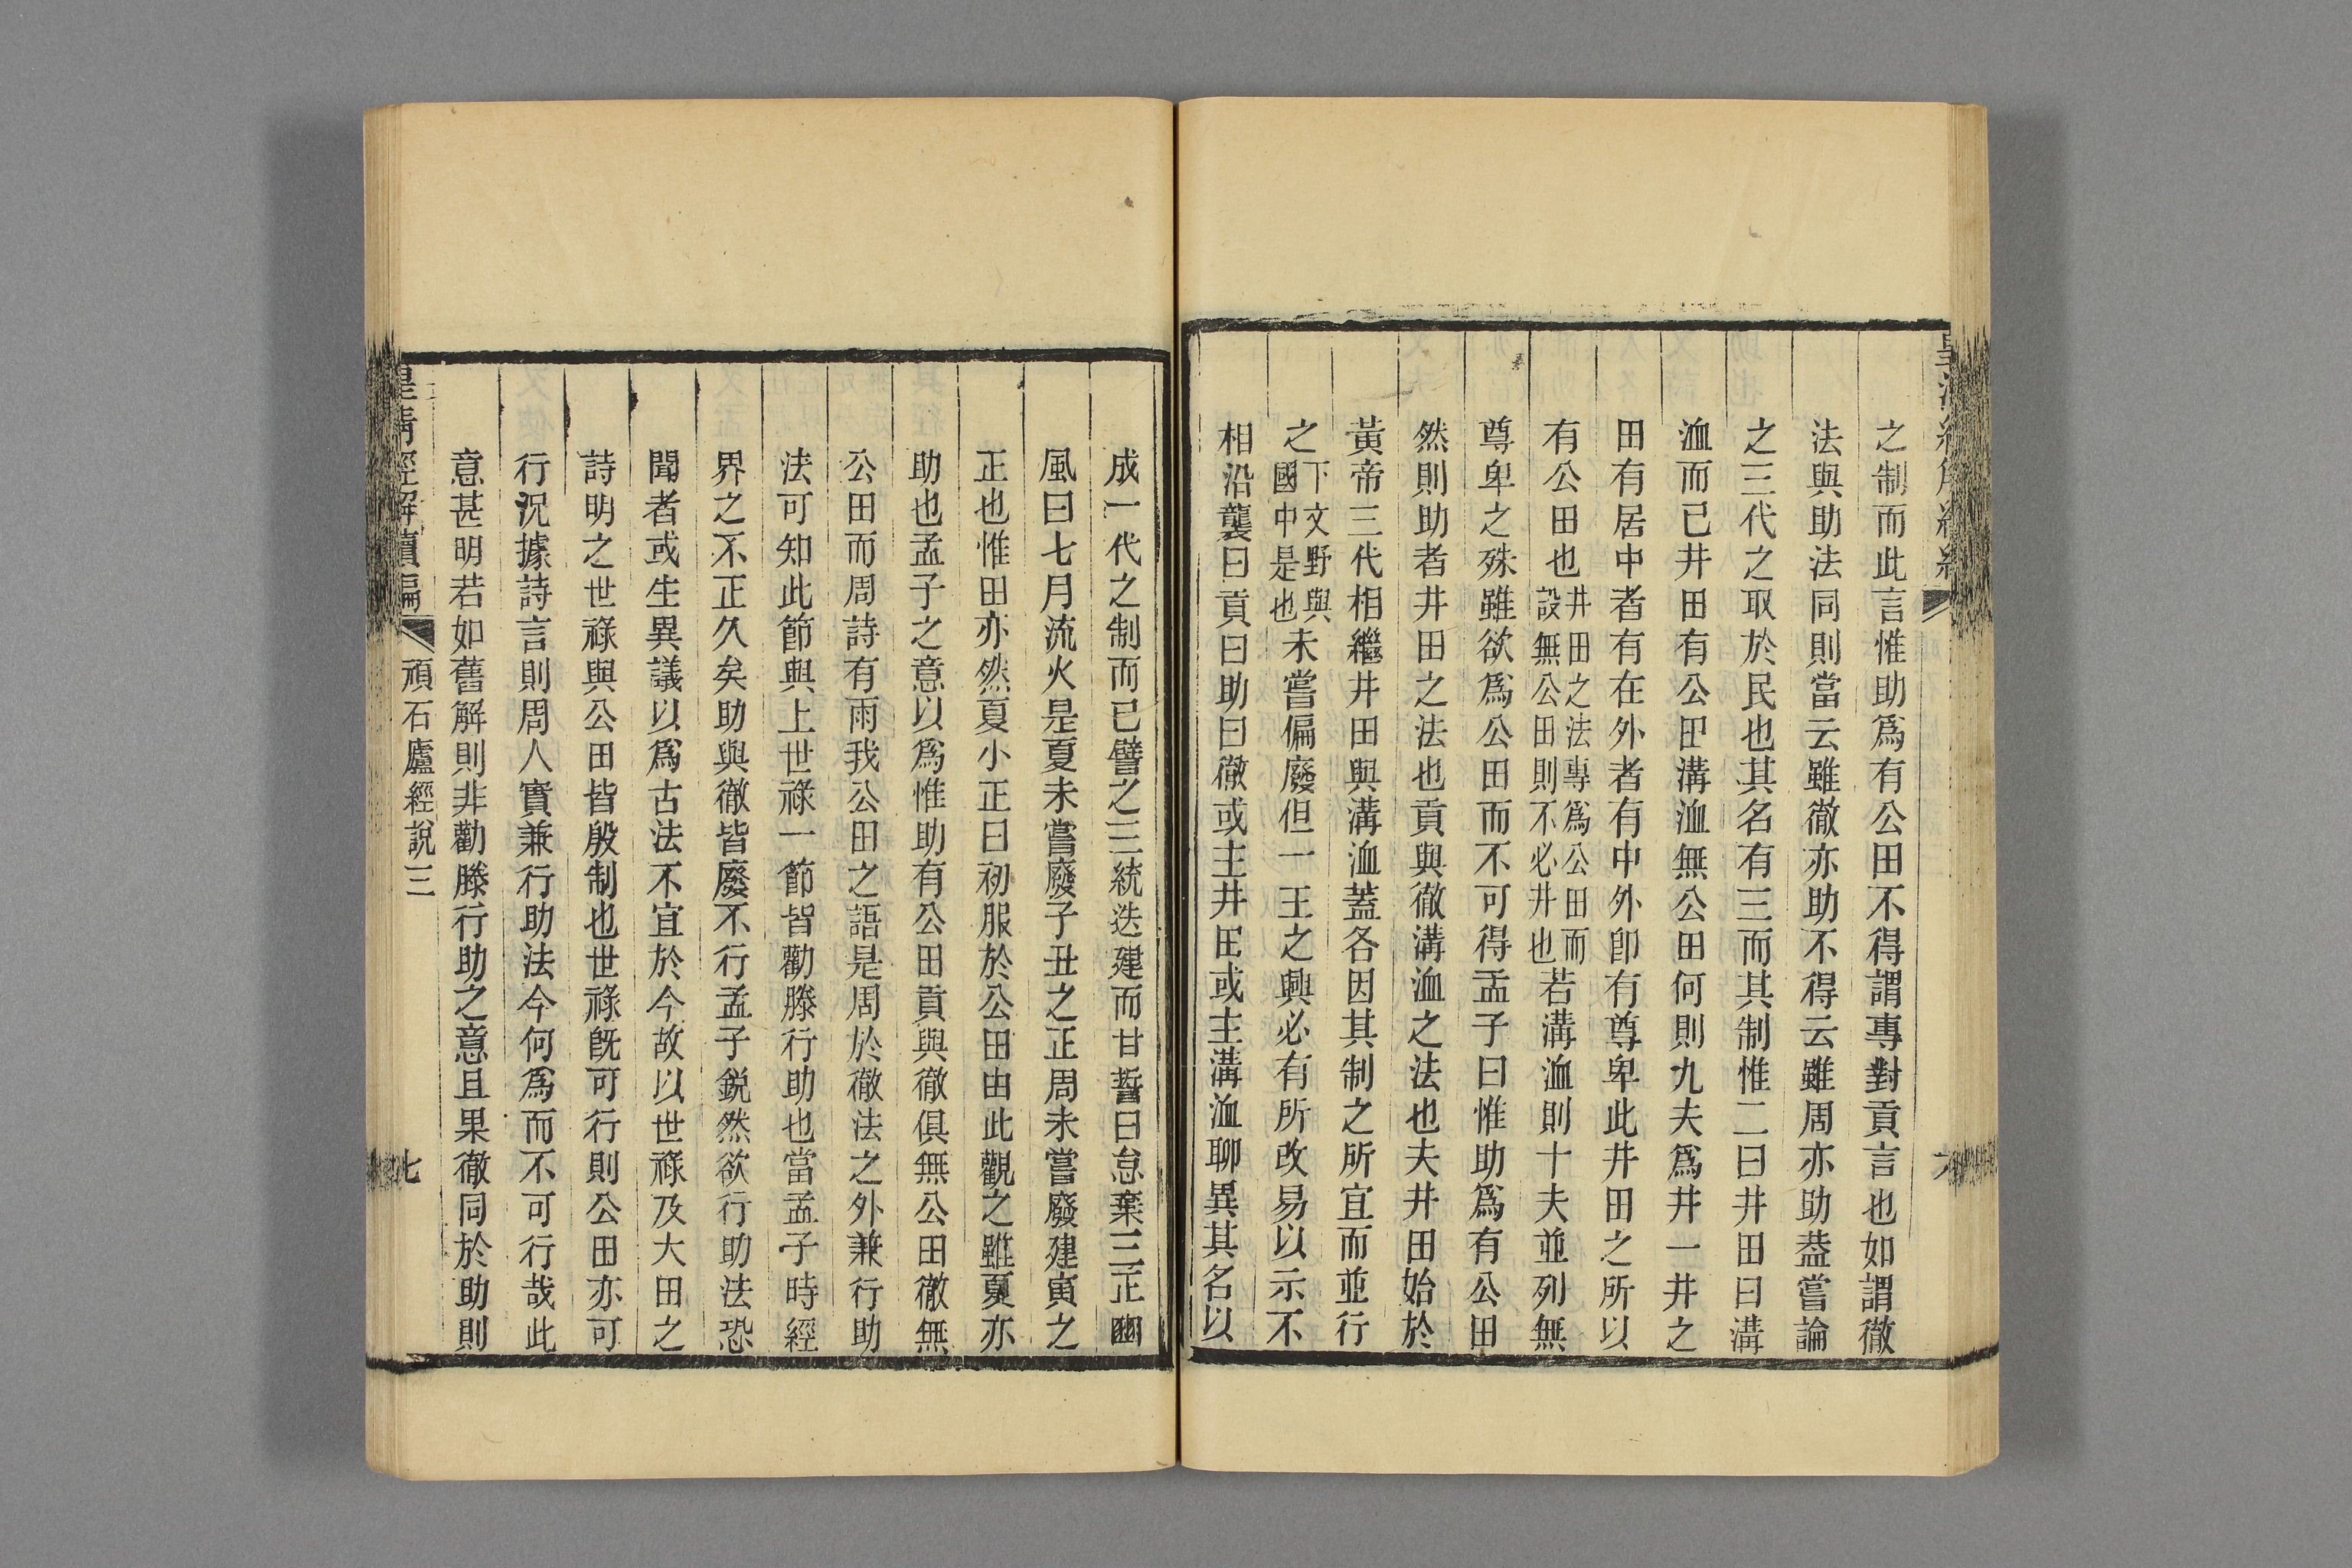 之制而此言惟助爲有公田不得謂專對貢言也如謂徹
法與助法同則當云雖徹亦助不得云雖周亦助葢嘗論
之三代之取於民也其名有三而其制惟二曰井田曰溝
洫而已井田有公田溝洫無公田何則九夫爲井一井之
田有居中者有在外者有中外卽有尊卑此井田之所以
有公田也井田之法專爲公田而設無公田則不必井也若溝洫則十夫並列無
尊卑之殊雖欲爲公田而不可得孟子曰惟助爲有公田
然則助者井田之法也貢與徹溝洫之法也夫井田始於
黃帝三代相繼井田與溝洫蓋各因其制之所宜而並行
之下文野與國中是也未嘗偏廢但一王之興必有所改易以示不
相沿襲曰貢曰助曰徹或主井田或主溝洫聊異其名以
成一代之制而已譬之三統迭建而甘誓曰怠棄三正豳
風曰七月流火是夏未嘗廢子丑之正周未嘗廢建寅之
正也惟田亦然夏小正曰初服於公田由此觀之雖夏亦
助也孟子之意以爲惟助有公田貢與徹俱無公田徹無
公田而周詩有雨我公田之語是周於徹法之外兼行助
法可知此節與上世祿一節皆勸滕行助也當孟子時經
界之不正久矣助與徹皆廢不行孟子銳然欲行助法恐
聞者或生異議以爲古法不宜於今故以世祿及大田之
詩明之世祿與公田皆殷制也世祿旣可行則公田亦可
行況據詩言則周人實兼行助法今何爲而不可行哉此
意甚明若如舊解則非勸滕行助之意且果徹同於助則
皇清經解續編 頑石廬經說三 七